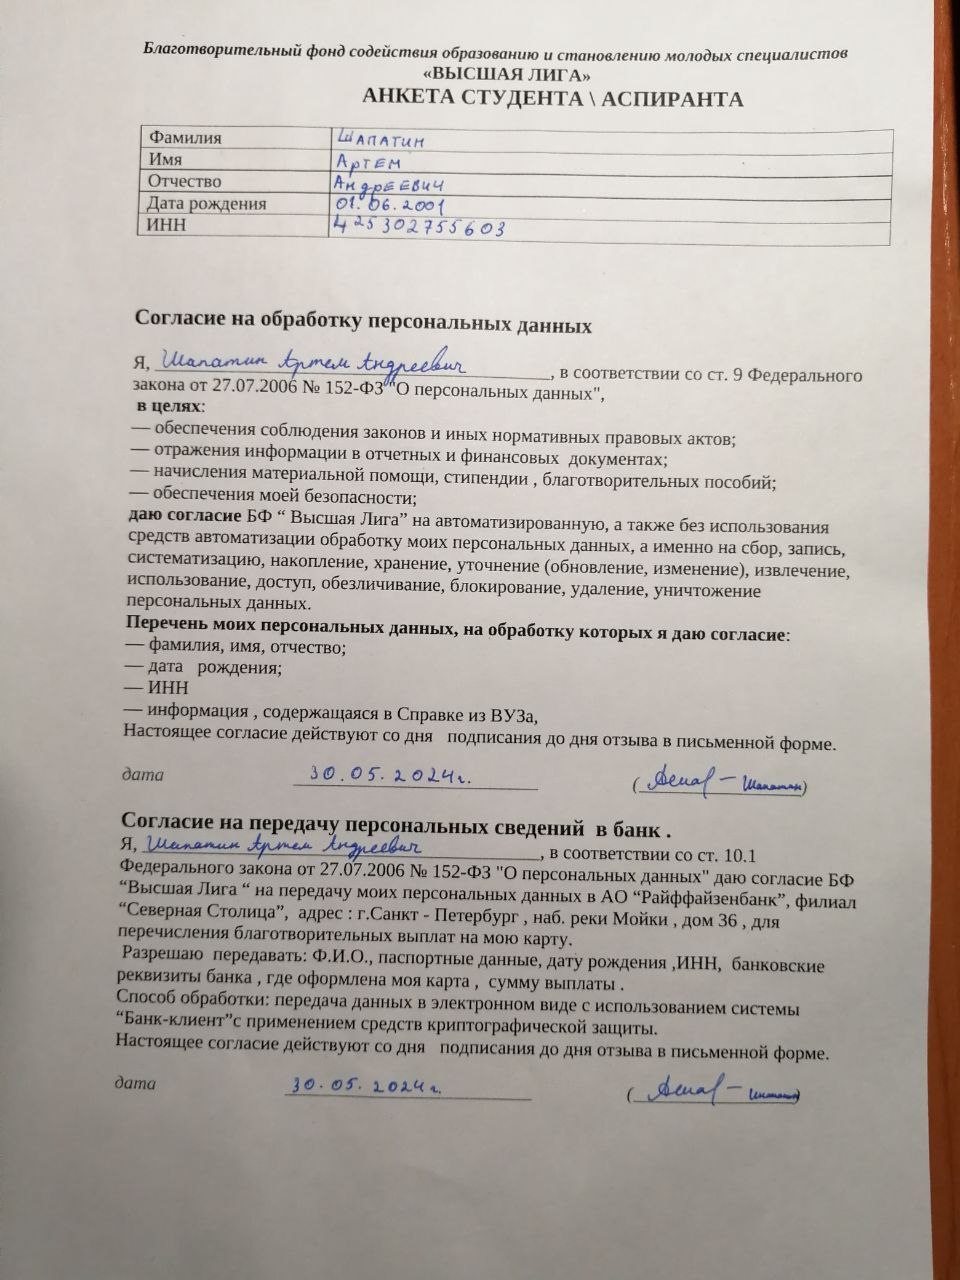 Благотворительный фонд содействия образованию и становлению молодых специалистов
«ВЫСШАЯ ЛИГА»
АНКЕТА СТУДЕНТА \ АСПИРАНТА
Фамилия Шапатин
Имя Артем
Отчество Андреевич
Дата рождения 01.06.2001
ИНН 425302755603
Согласие на обработку персональных данных
Я, Шапатин Артем Андреевич, в соответствии со ст. 9 Федерального
закона от 27.07.2006 № 152-ФЗ "О персональных данных",
в целях:
— обеспечения соблюдения законов и иных нормативных правовых актов;
— отражения информации в отчетных и финансовых документах;
— начисления материальной помощи, стипендии , благотворительных пособий;
— обеспечения моей безопасности;
даю согласие БФ “ Высшая Лига” на автоматизированную, а также без использования
средств автоматизации обработку моих персональных данных, а именно на сбор, запись,
систематизацию, накопление, хранение, уточнение (обновление, изменение), извлечение,
использование, доступ, обезличивание, блокирование, удаление, уничтожение
персональных данных.
Перечень моих персональных данных, на обработку которых я даю согласие:
— фамилия, имя, отчество;
— дата рождения;
— ИНН
— информация , содержащаяся в Справке из ВУЗа,
Настоящее согласие действуют со дня подписания до дня отзыва в письменной форме.
дата 30.05.2024г. ( Шапатин)
Согласие на передачу персональных сведений в банк .
Я, Шапатин Артем Андреевич, в соответствии со ст. 10.1
Федерального закона от 27.07.2006 № 152-ФЗ "О персональных данных" даю согласие БФ
“Высшая Лига “ на передачу моих персональных данных в АО “Райффайзенбанк”, филиал
“Северная Столица”, адрес : г.Санкт - Петербург , наб. реки Мойки , дом 36 , для
перечисления благотворительных выплат на мою карту.
Разрешаю передавать: Ф.И.О., паспортные данные, дату рождения ,ИНН, банковские
реквизиты банка , где оформлена моя карта , сумму выплаты .
Способ обработки: передача данных в электронном виде с использованием системы
“Банк-клиент”с применением средств криптографической защиты.
Настоящее согласие действуют со дня подписания до дня отзыва в письменной форме.
дата 30.05.2024г. ( Шапатин)